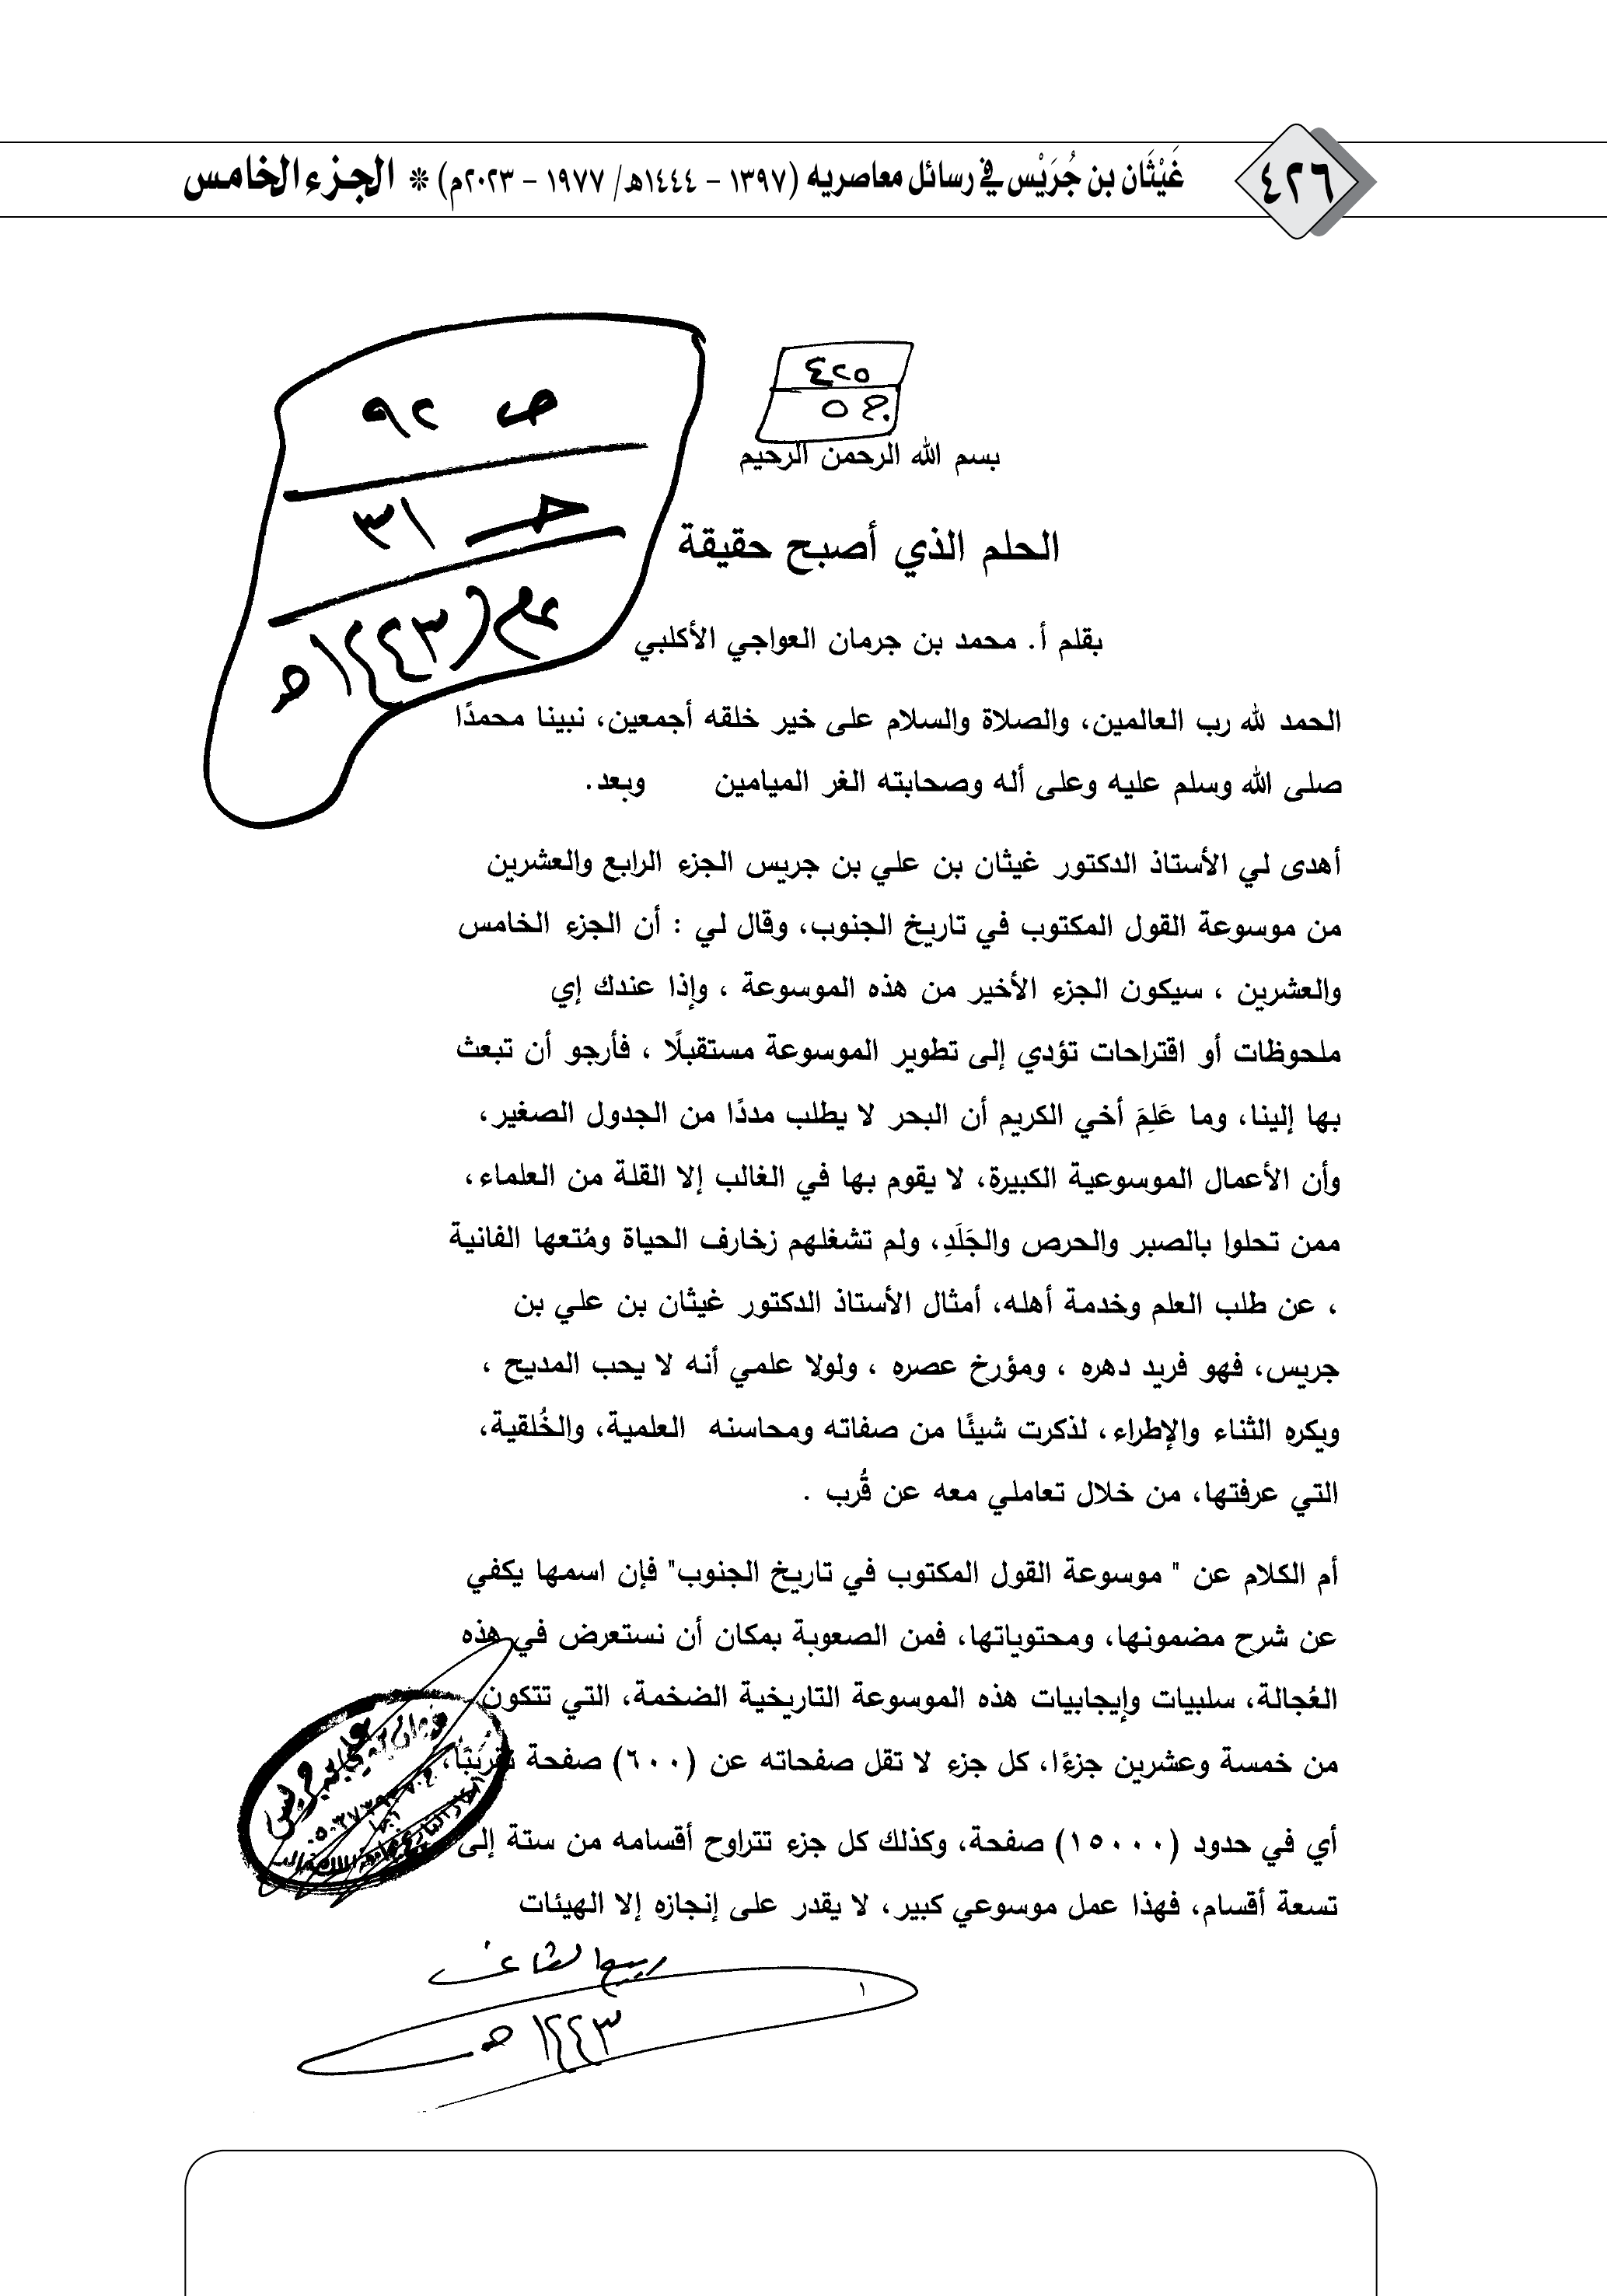 ٤٢٦
غَيْثَان بن جُرَيْس في رسائل معاصريه (١٣٩٧ - ١٤٤٤هـ/ ١٩٧٧ - ٢٠٢٣م) * الجزء الخامس
٤٢٥
ج ٥
ص ٩٢
جـ ٣١
١٤٤٣هـ
بسم الله الرحمن الرحيم
الحلم الذي أصبح حقيقة
بقلم أ. محمد بن جرمان العواجي الأكلبي
الحمد لله رب العالمين، والصلاة والسلام على خير خلقه أجمعين، نبينا محمدًا
صلى الله وسلم عليه وعلى أله وصحابته الغر الميامين وبعد.
أهدى لي الأستاذ الدكتور غيثان بن علي بن جريس الجزء الرابع والعشرين
من موسوعة القول المكتوب في تاريخ الجنوب، وقال لي : أن الجزء الخامس
والعشرين ، سيكون الجزء الأخير من هذه الموسوعة ، وإذا عندك إي
ملحوظات أو اقتراحات تؤدي إلى تطوير الموسوعة مستقبلًا ، فأرجو أن تبعث
بها إلينا، وما عَلِمَ أخي الكريم أن البحر لا يطلب مددًا من الجدول الصغير،
وأن الأعمال الموسوعية الكبيرة، لا يقوم بها في الغالب إلا القلة من العلماء،
ممن تحلوا بالصبر والحرص والجَلَدِ، ولم تشغلهم زخارف الحياة ومُتعها الفانية
، عن طلب العلم وخدمة أهله، أمثال الأستاذ الدكتور غيثان بن علي بن
جريس، فهو فريد دهره ، ومؤرخ عصره ، ولولا علمي أنه لا يحب المديح ،
ويكره الثناء والإطراء، لذكرت شيئًا من صفاته ومحاسنه العلمية، والخُلقية،
التي عرفتها، من خلال تعاملي معه عن قُرب .
أم الكلام عن " موسوعة القول المكتوب في تاريخ الجنوب" فإن اسمها يكفي
عن شرح مضمونها، ومحتوياتها، فمن الصعوبة بمكان أن نستعرض في هذه
العُجالة، سلبيات وإيجابيات هذه الموسوعة التاريخية الضخمة، التي تتكون
من خمسة وعشرين جزءًا، كل جزء لا تقل صفحاته عن (٦٠٠) صفحة تقريبًا،
أي في حدود (١٥٠٠٠) صفحة، وكذلك كل جزء تتراوح أقسامه من ستة إلى
تسعة أقسام، فهذا عمل موسوعي كبير، لا يقدر على إنجازه إلا الهيئات
١
١٤٤٣هـ